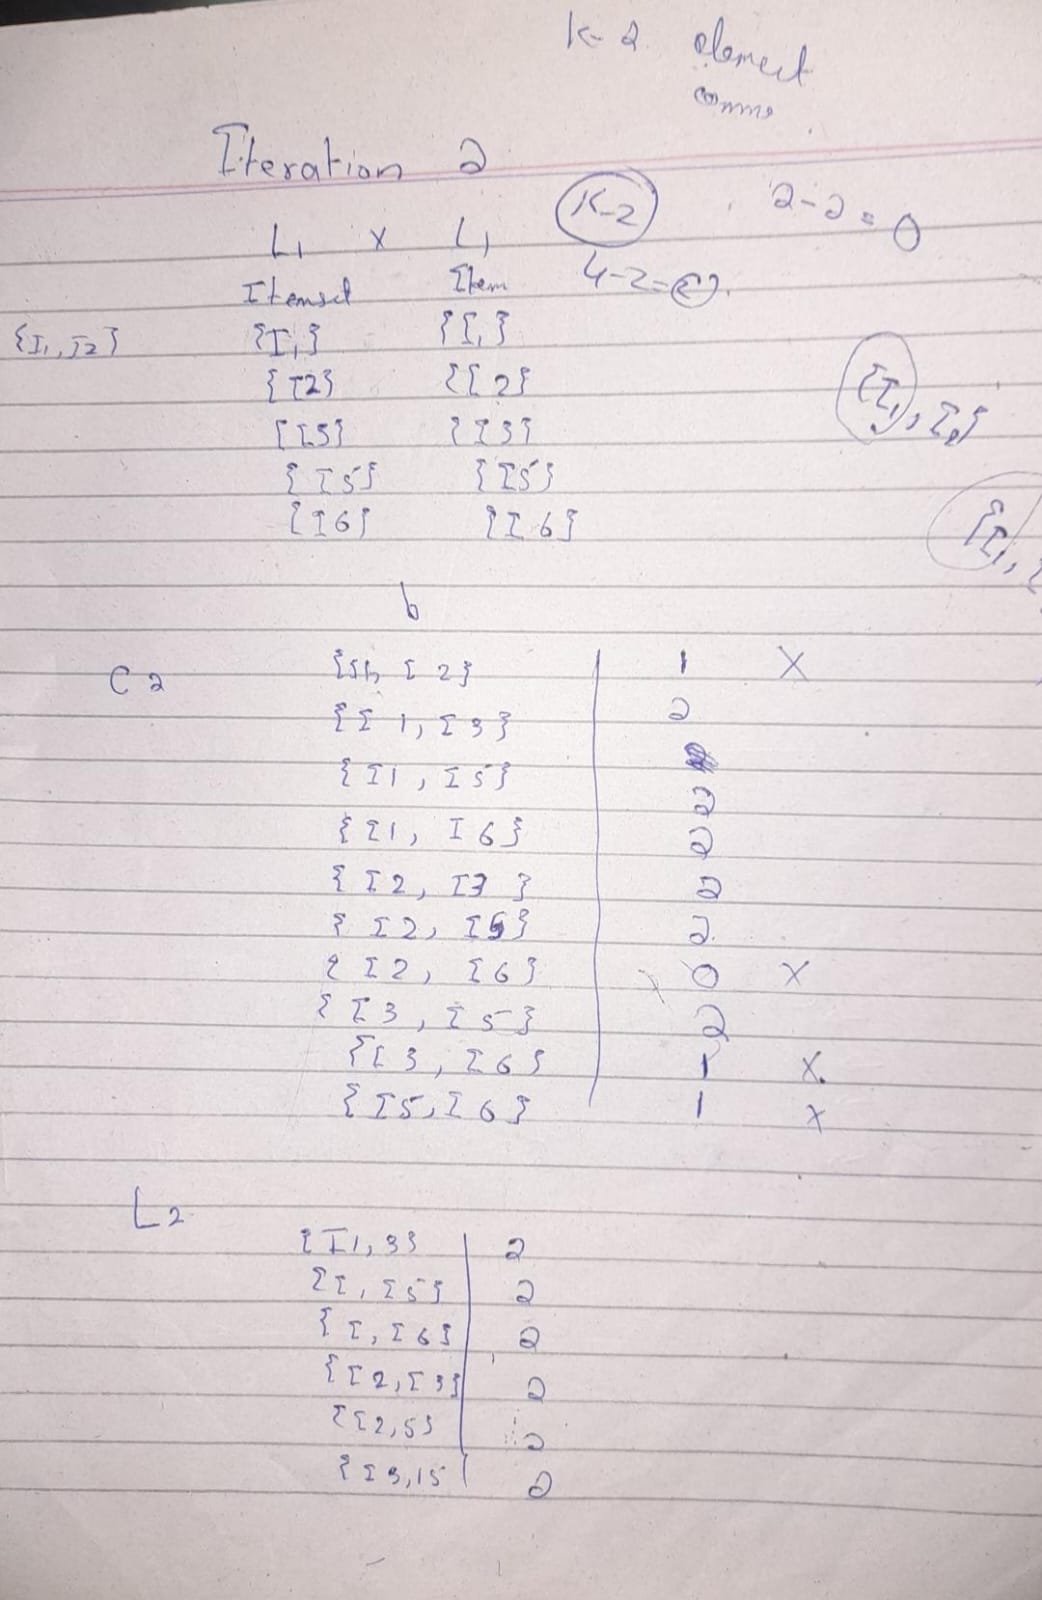 K-2 element
Iteration 2
L1 x L1 K-2 2-2=0
Itemset Item 4-2=
{I1, I2} {I1} {I1}
{I2} {I2}
{I3} {I3}
{I5} {I5}
{I6} {I6}
{I1, I2}
{I1,
b
C2 {I1, I2} 1 X
{I1, I3} 2
{I1, I5} 2
{I1, I6} 2
{I2, I3} 2
{I2, I5} 2
{I2, I6} 0 X
{I3, I5} 2
{I3, I6} 1 X
{I5, I6} 1 X
L2
{I1, 3} 2
{I, I5} 2
{I, I6} 2
{I2, I3} 2
{I2, 5} 2
{I3, I5 2